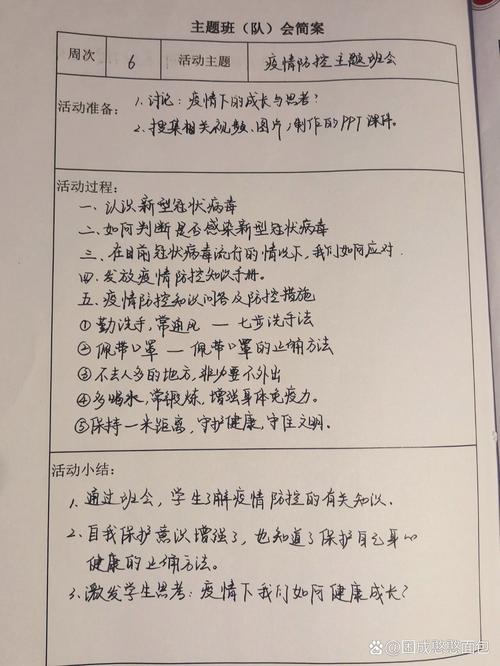 主题班（队）会简案
周次 6 活动主题 疫情防控主题班会
活动准备： 1.讨论：疫情下的成长与思考？
2.搜集相关视频、图片，制作的PPT课件。
活动过程：
一、认识新型冠状病毒
二、如何判断是否感染新型冠状病毒
三、在目前冠状病毒流行的情况下，我们如何应对.
四、发放疫情防控知识手册.
五、疫情防控知识问答及防控措施
①勤洗手，常通风 — 七步洗手法
②佩带口罩 — 佩带口罩的正确方法
③不去人多的地方，非必要不外出
④多喝水，常锻炼，增强身体免疫力。
⑤保持一米距离，守护健康，守住文明.
活动小结：
1.通过班会，学生了解疫情防控的有关知识.
2.自我保护意识增强了，也知道了保护自己身心
健康的正确方法。
3.激发学生思考：疫情下我们如何健康成长？
困成憨憨面包